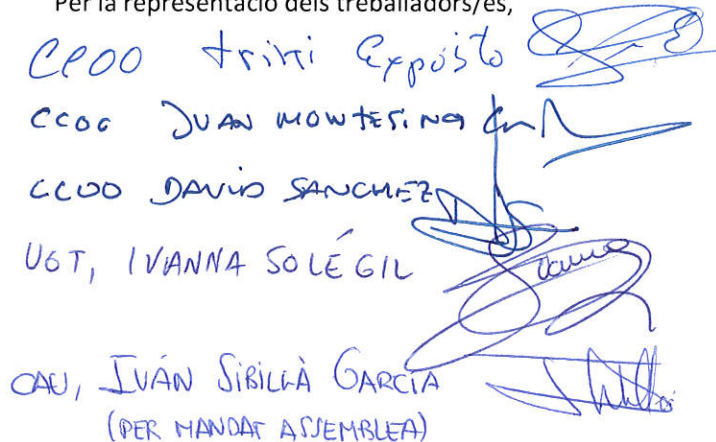 Per la representació dels treballadors/es,
CCOO trini Expósito
CCOO JUAN MONTESINOS
CCOO DAVID SANCHEZ
UGT, IVANNA SOLÉ GIL
Ivanna
CAU, IVÁN SIBILLÀ GARCÍA
(PER MANDAT ASSEMBLEA)